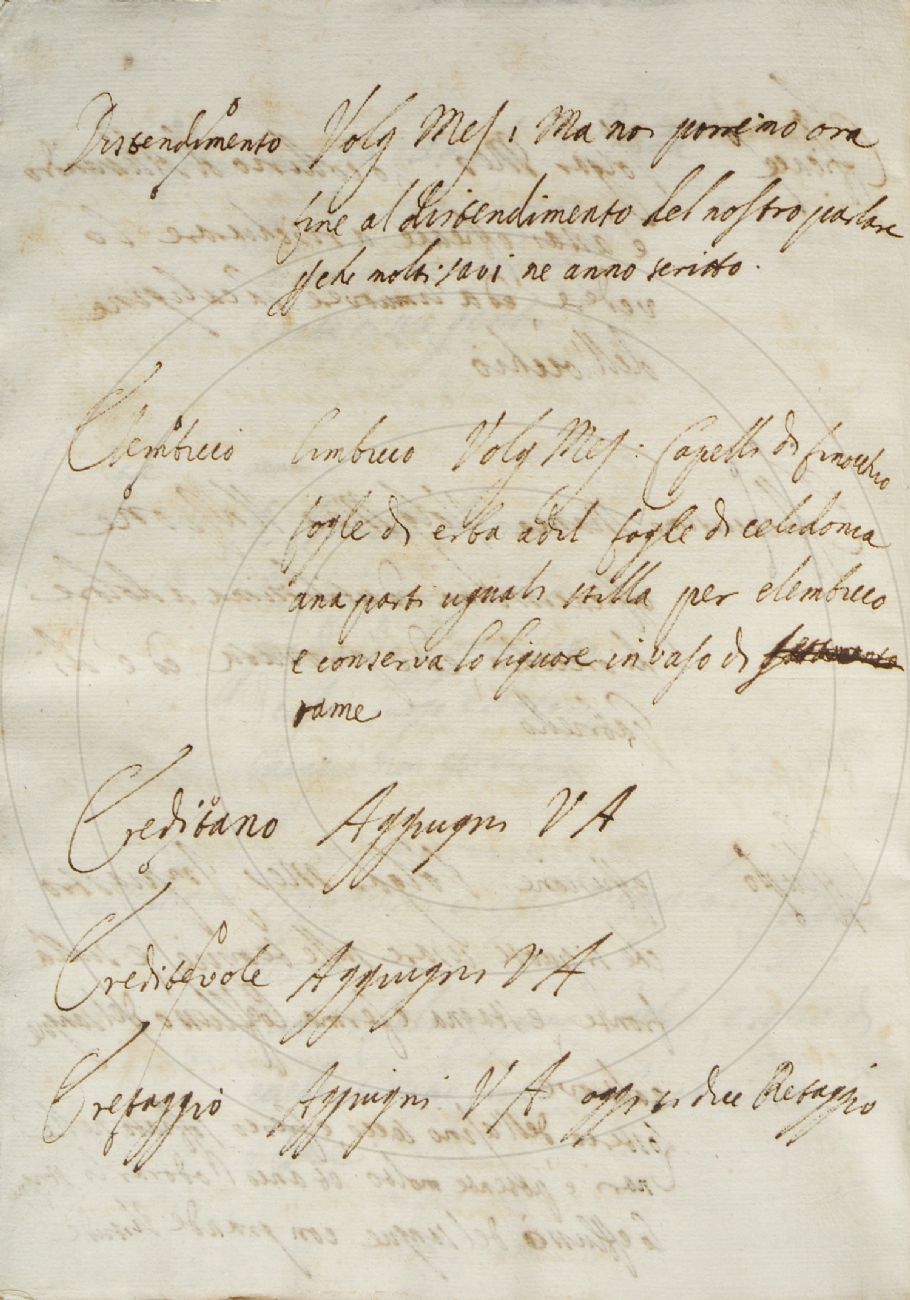 Distendimento Volg Mes: Ma noi porremo ora
fine al distendimento del nostro parlare
che molti savi ne anno scritto.
Elembicco limbicco Volg Mes: Capelli di finocchio
fogle di erba adil fogle di celidonia
ana parti uguali stilla per elembicco
e conserva lo liquore in vaso di
rame
Ereditano Aggiugni V A
Ereditevole Aggiugni V A
Eretaggio Aggiugni V A oggi si dice Retaggio